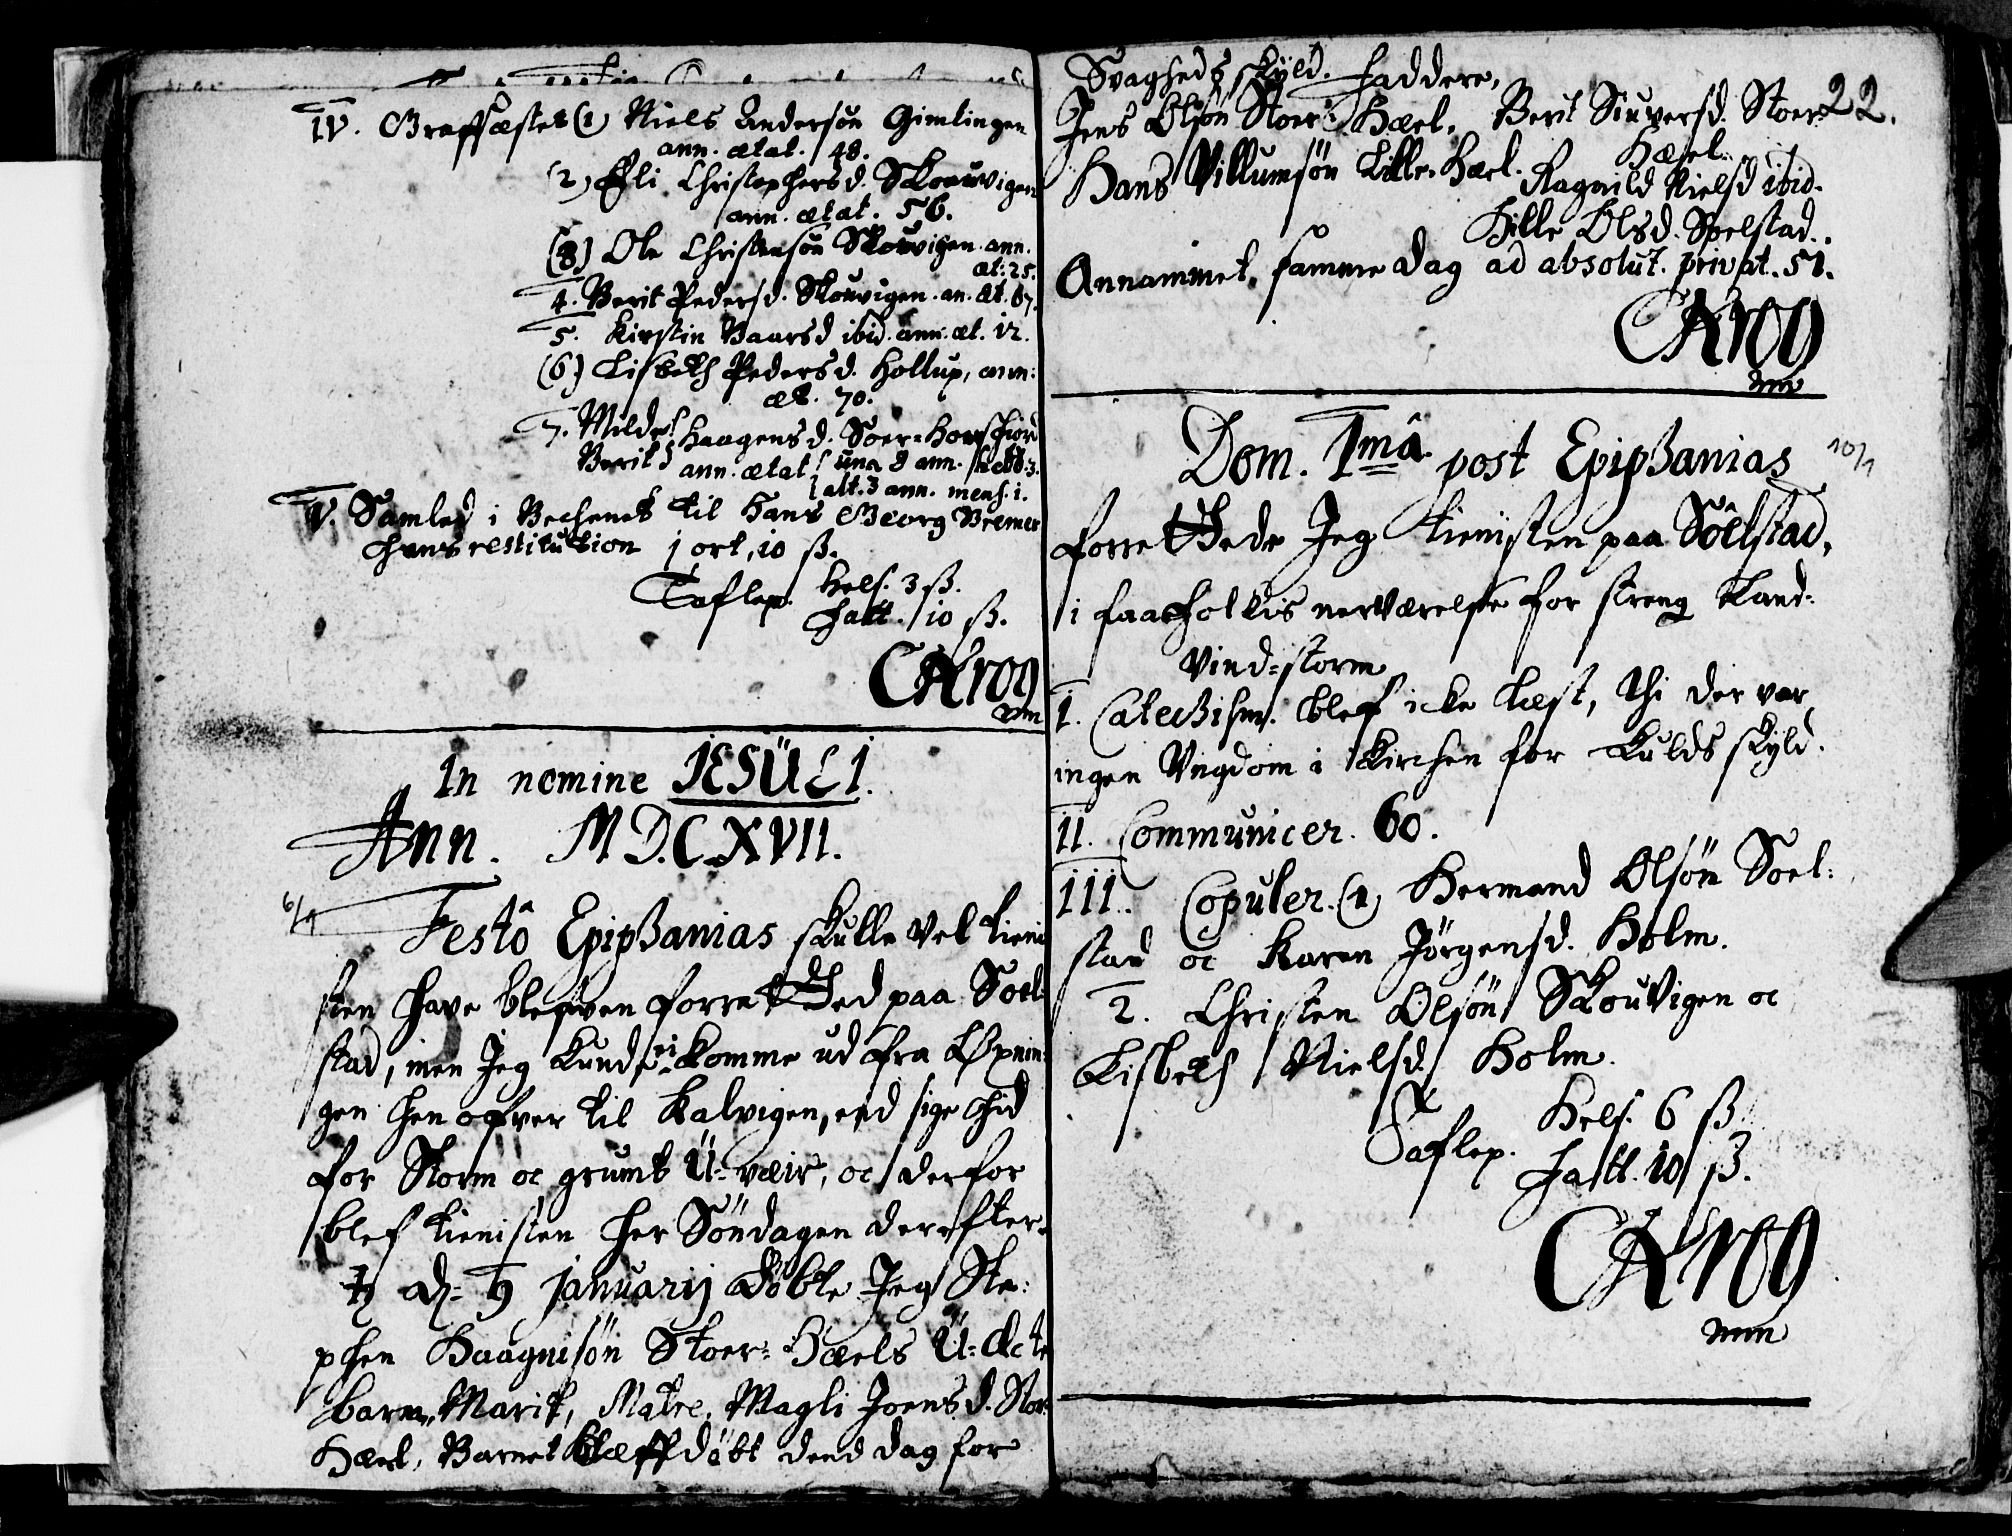 IV. Graffæstet (1) Niels Andersøn Gimlingen
ann. ætat. 48.
(2) Eli Christophersd. Skouvigen
ann. ætat. 56.
(3) Ole Christensøn Skouvigen. ann.
æt: 25.
4. Berit Pedersd. Skouvigen. an. æt. 67.
5. Kirstin Baarsd ibid. ann. æt. 12.
(6) Lisbeth Pedersd. Hollup, ann:
æt. 70.
7. Mildri Haagensd. Soer=
Berit ann. ætat una 8 ann. hebd. 3.
alt. 3 ann. mens. 1.
V. Samled i Bechenet til Hans Georg Bremer
hans restitution 1 ort, 10 ß.
Taflep. Hels. 3 ß.
Fatt. 10 ß.
CKrog
mm
In nomine JESÜLI.
Ann. MDCXVII.
6/1
Festô Epiphanias skulle vel tieni
sten have blefven forrettted paa Soel
stad, men Jeg kunde ei komme ud fra Øpnin
gen hen ofver til Kalvigen, end sige hid
for Storm oc grumt Ü=væir, oc derfor
blef tienisten her Söndagen derefter.
d. 9 Januarij döbte Jeg Ste:
phen Haagnisön Stoer=Hæels Ü=ecte
barn, Marit, Matre, Magli Joensd. Stor
Hæel, Barnet blef döbt dend dag for
Svagheds skyld. Faddere,
22.
Jens Olsön Stoer=Hæel. Berit Siuversd. Stoer
Hæel.
Hans Villumsön Lille=Hæel. Ragnild Nielsd ibid.
Hille Olsd. Spelstad.
Annammet samme dag ad absolut. privat. 51.
CKrog
mm
Dom. 1mâ post Epiphanias 10/1
forrettede Jeg tienisten paa Söelstad,
i faa folkis nerværelse for streng Land=
Vind=storm
I. Catechism. blef icke læst, thi der var
ingen Vngdom i Kirchen for Kulds skyld.
II. Communicer. 60.
III. Copuler. (1) Hermand Olsön Soel:
stad oc Karen Jörgensd. Holm.
2. Christen Olsön SkouVigen oc
Lisbeth Nielsd Holm.
Taflep. Hels. 6 ß.
Fatt. 10 ß.
CKrog
mm